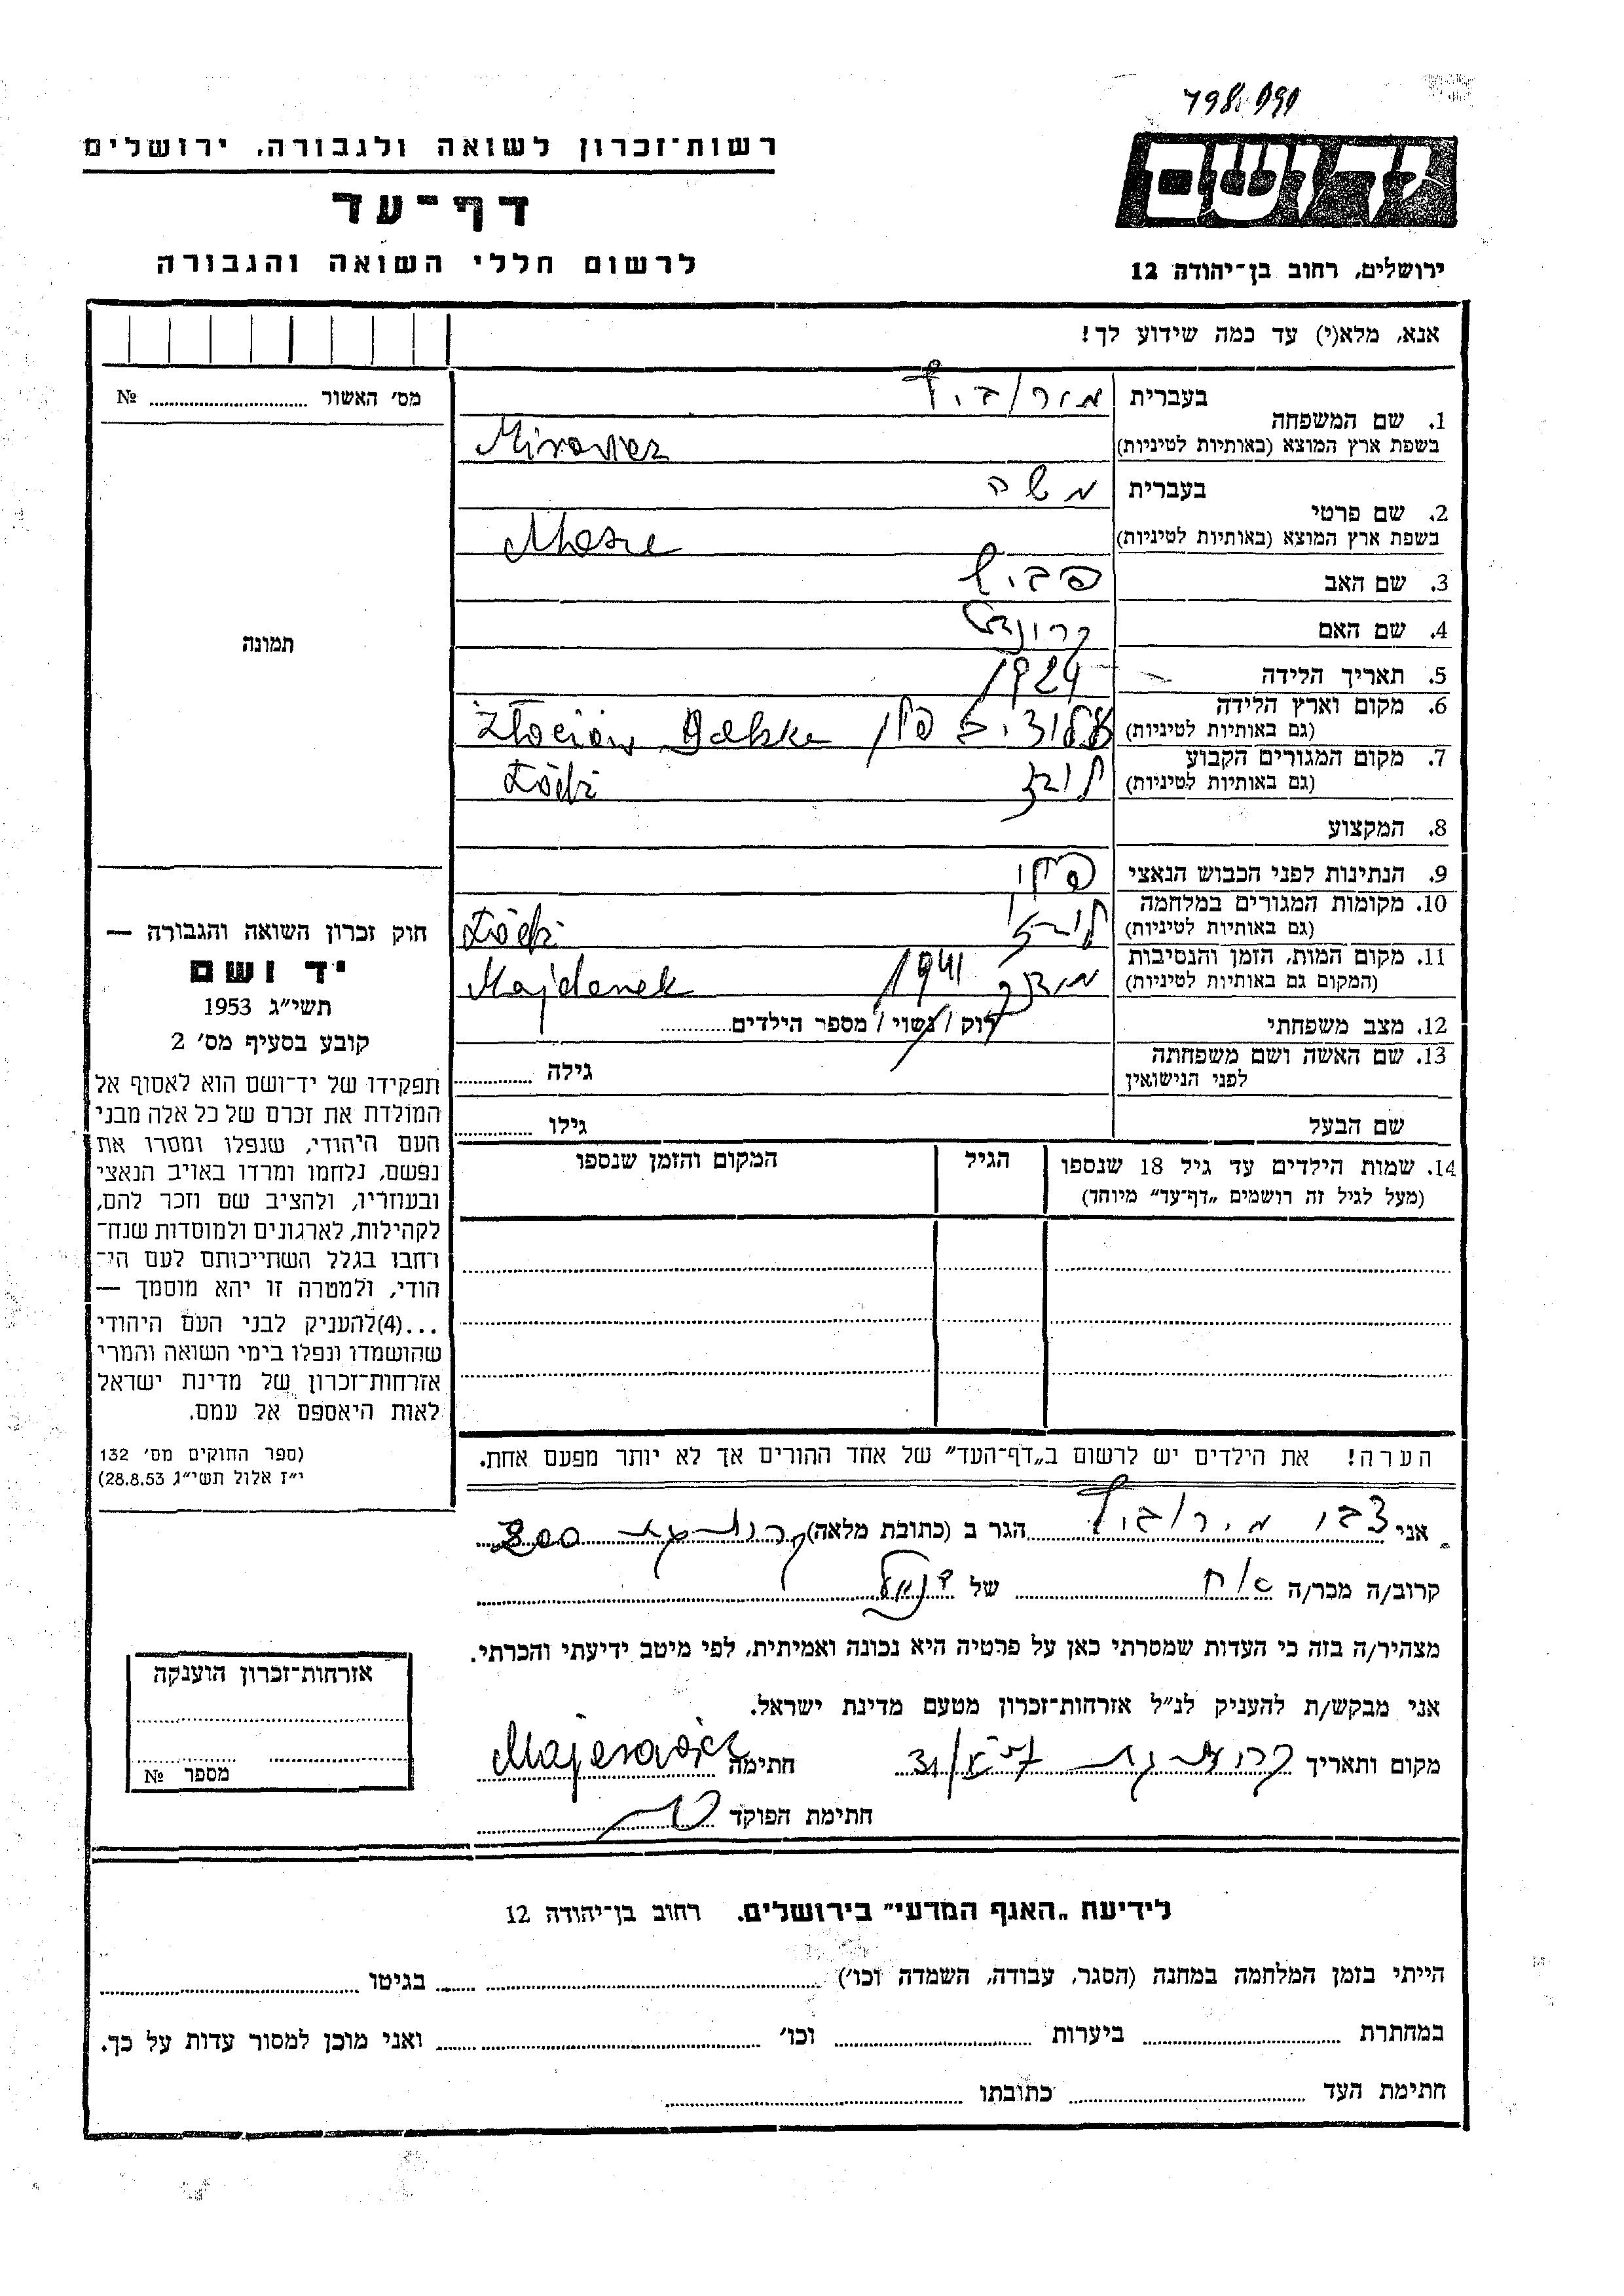 רשות־זכרון לשואה ולגבורה. ירושלים
דף־עד
לרשום חללי השואה והגבורה
יד ושם
ירושלים, רחוב בן־יהודה 12
אנא, מלא(י) עד כמה שידוע לך!
מס׳ האשור № ........
תמונה
1. שם המשפחה
בעברית
בשפת ארץ המוצא (באותיות לטיניות)
2. שם פרטי
בעברית משה
בשפת ארץ המוצא (באותיות לטיניות)
3. שם האב
4. שם האם
5. תאריך הלידה 1924
6. מקום וארץ הלידה
(גם באותיות לטיניות)
7. מקום המגורים הקבוע לודז
(גם באותיות לטיניות) Łódź
8. המקצוע
9. הנתינות לפני הכבוש הנאצי
10. מקומות המגורים במלחמה לודז
(גם באותיות לטיניות) Łódź
11. מקום המות, הזמן והנסיבות 1941
(המקום גם באותיות לטיניות) Majdanek
12. מצב משפחתי רוק / נשוי / מספר הילדים........
13. שם האשה ושם משפחתה גילה ........
לפני הנישואין
שם הבעל גילו ........
14. שמות הילדים עד גיל 18 שנספו
(מעל לגיל זה רושמים „דף־עד” מיוחד)
הגיל
המקום והזמן שנספו
הערה! את הילדים יש לרשום ב„דף־העד” של אחד ההורים אך לא יותר מפעם אחת.
חוק זכרון השואה והגבורה —
יד ושם
תשי״ג 1953
קובע בסעיף מס׳ 2
תפקידו של יד־ושם הוא לאסוף אל
המולדת את זכרם של כל אלה מבני
העם היהודי, שנפלו ומסרו את
נפשם, נלחמו ומרדו באויב הנאצי
ובעוזריו, ולהציב שם וזכר להם,
לקהילות, לארגונים ולמוסדות שנח־
רחבו בגלל השתייכותם לעם הי־
הודי, ולמטרה זו יהא מוסמך —
...(4)להעניק לבני העם היהודי
שהושמדו ונפלו בימי השואה והמרי
אזרחות־זכרון של מדינת ישראל
לאות היאספם אל עמם.
(ספר החוקים מס׳ 132
י״ז אלול תשי״ג 28.8.53)
אני צבי מירוביץ הגר ב (כתובת מלאה) 300
קרוב/ה מכר/ה אח של
מצהיר/ה בזה כי העדות שמסרתי כאן על פרטיה היא נכונה ואמיתית, לפי מיטב ידיעתי והכרתי.
אני מבקש/ת להעניק לנ״ל אזרחות־זכרון מטעם מדינת ישראל.
מקום ותאריך חתימה
חתימת הפוקד
אזרחות־זכרון הוענקה
מספר №
לידיעת „האגף המדעי” בירושלים. רחוב בן־יהודה 12
הייתי בזמן המלחמה במחנה (הסגר, עבודה, השמדה וכו׳) ........ בגיטו ........
במחתרת ........ ביערות ........ וכו׳ ........ ואני מוכן למסור עדות על כך.
חתימת העד ........ כתובתו ........